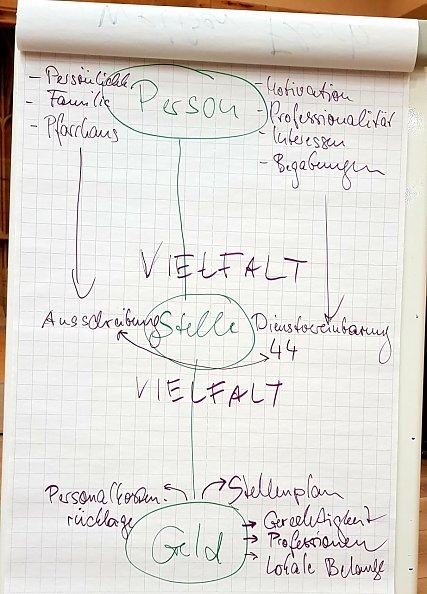 - Persönlichk.
- Familie
- Pfarrhaus
Person
- Motivation
- Professionalität
- Interessen
- Begabungen
VIELFALT
Ausschreibung
Stelle
Dienstvereinbarung
44
VIELFALT
Personalkosten-
rücklage
Stellenplan
Geld
Gerechtigkeit
Professionen
lokale Belange